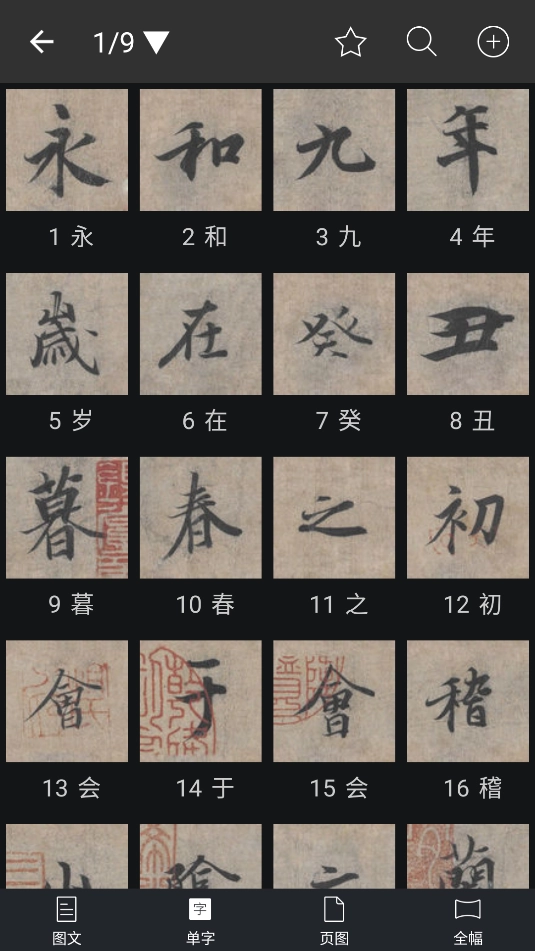 1/9
永 和 九 年
1 永 2 和 3 九 4 年
歲 在 癸 丑
5 岁 6 在 7 癸 8 丑
暮 春 之 初
9 暮 10 春 11 之 12 初
會 于 會 稽
13 会 14 于 15 会 16 稽
字
图文 单字 页图 全幅